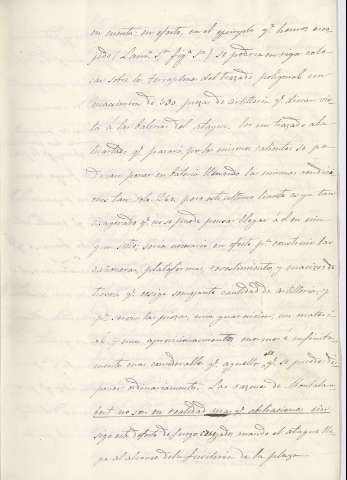 en cuenta: en efecto, en el ejemplo q.e hemos esco-
gido (Lam.a 5.a fig.a 5.a) se podrian en rigor colo-
car sobre el terraplen del trazado poligonal un
maximum de 430 piezas de artilleria q.e dieran vis-
ta á las baterias del ataque. En un trazado aba-
luartado q.e pasara por los mismos salientes se po-
drian poner en bateria llenando las mismas condicio-
nes tan solo 260; pero este ultimo limite es ya tan
exagerado q.e no se puede pensar llegar á él en nin-
gun sitio; seria necesario en efecto p.a construir las
cañoneras, plataformas, revestimientos y macizos de
tierra q.e exige semejante cantidad de artilleria, y
p.a servir las piezas, una guarnicion, un materi-
al y un aprovisionamiento enorme é infinita-
mente mas considerable q.e aquellos de q.e se puede dis-
poner ordinariamente. Las razones de Montalem-
bert no son en realidad mas q.e
sigo este defecto de fuegos cruzados cuando el ataque lle-
ga al alcance de la fusileria de la plaza